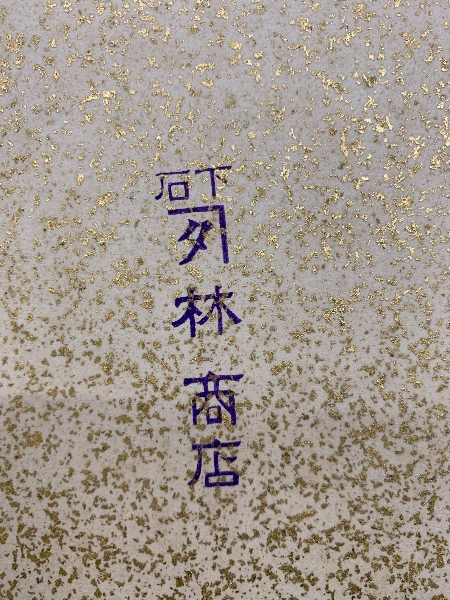 下石
夕
林商店